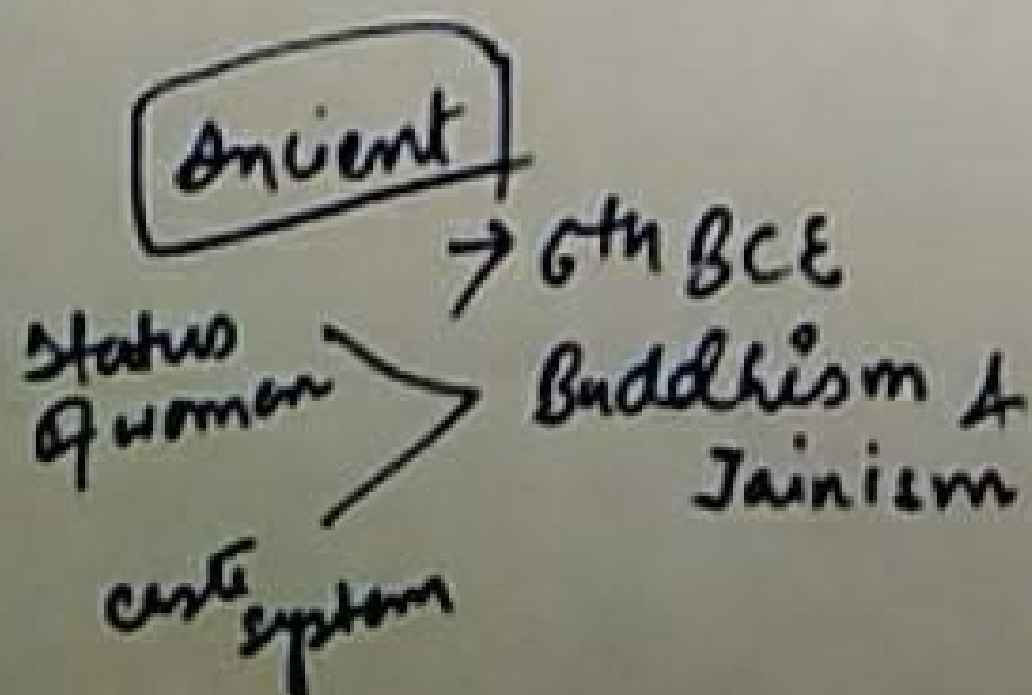 Ancient
→ 6th BCE
Status
of women
Buddhism &
Jainism
caste
system